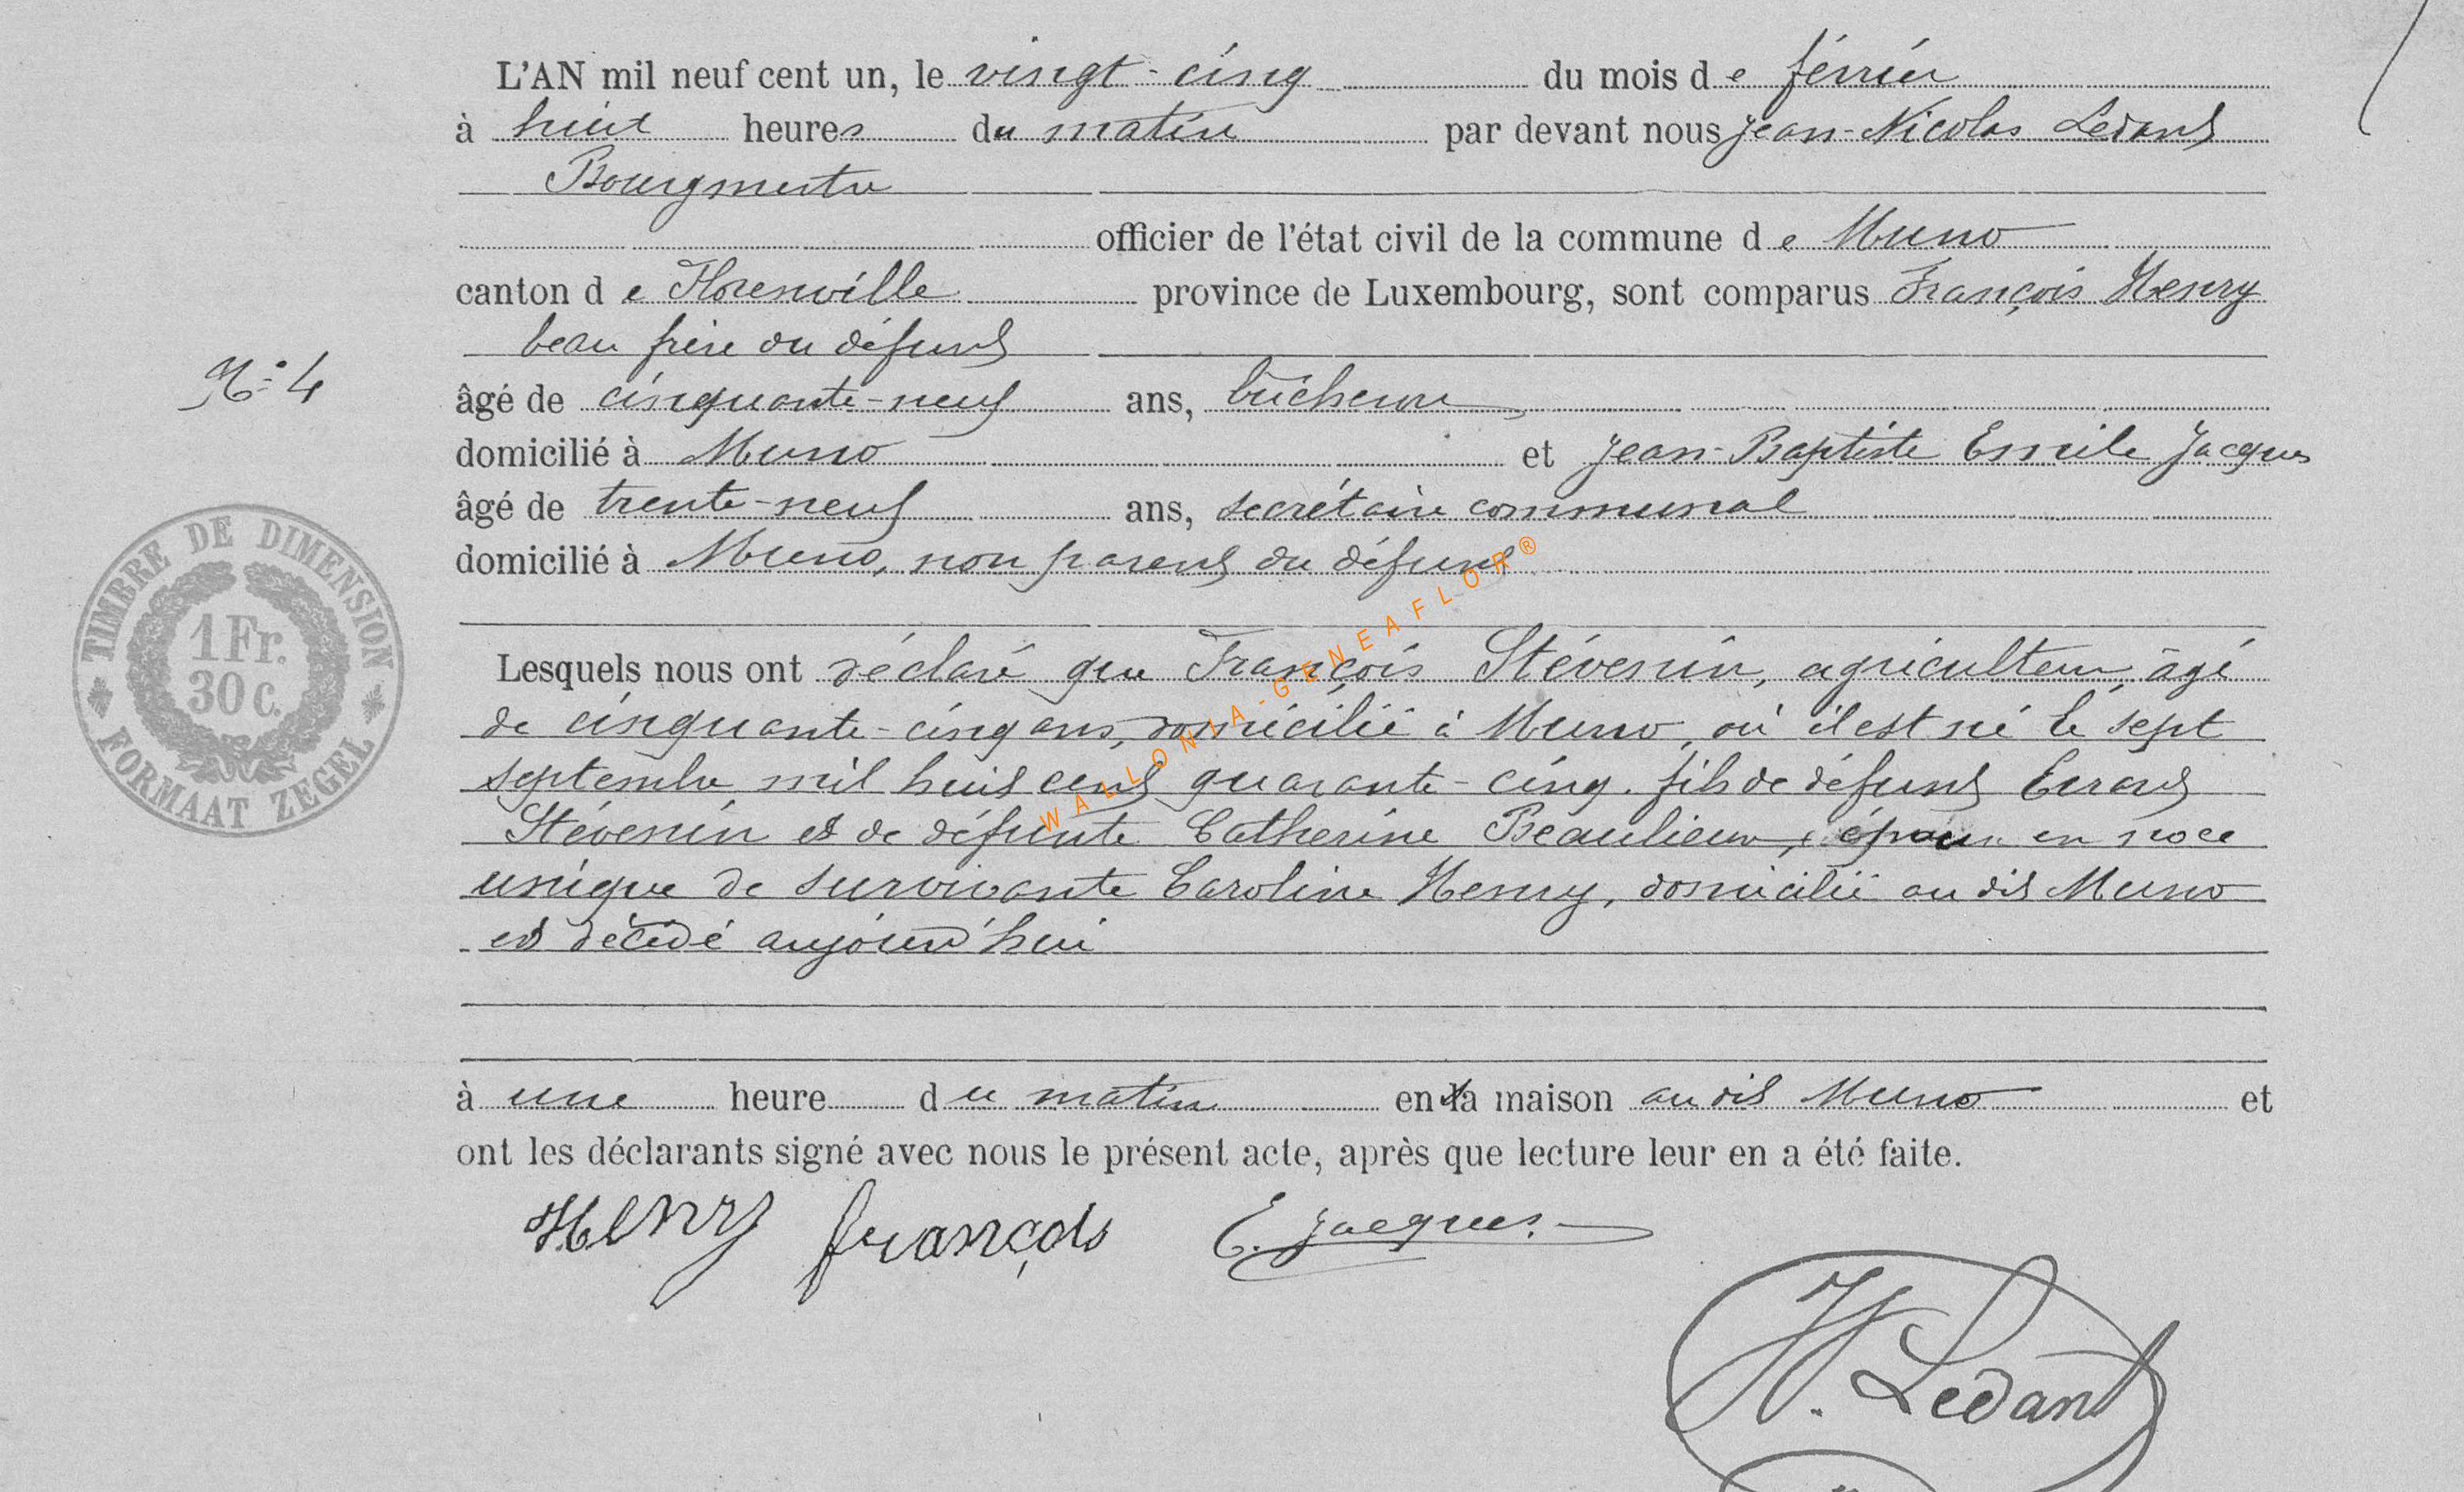 L'AN mil neuf cent un, le vingt-cinq du mois de février
à huit heures du matin par devant nous Jean-Nicolas Ledant
Bourgmestre
officier de l'état civil de la commune de Muno
canton de Florenville province de Luxembourg, sont comparus François Henry
beau frère du défunt
N° 4
âgé de cinquante-neuf ans, bûcheron,
domicilié à Muno et Jean-Baptiste Emile Jacques
âgé de trente-neuf ans, secrétaire communal
domicilié à Muno, non parent du défunt
TIMBRE DE DIMENSION
1 Fr.
30 c.
FORMAAT ZEGEL
Lesquels nous ont déclaré que François Stévenin, agriculteur, âgé
de cinquante-cinq ans, domicilié à Muno, où il est né le sept
septembre mil huit cent quarante-cinq, fils de défunt
Stévenin et de défunte Catherine Beaulieu, époux en noce
unique de survivante Caroline Henry, domiciliée au dit Muno
est décédé aujourd'hui
à une heure du matin en la maison au dit Muno et
ont les déclarants signé avec nous le présent acte, après que lecture leur en a été faite.
Henry françois E. Jacques.
N. Ledant
WALLONIA-GENEAFLOR®